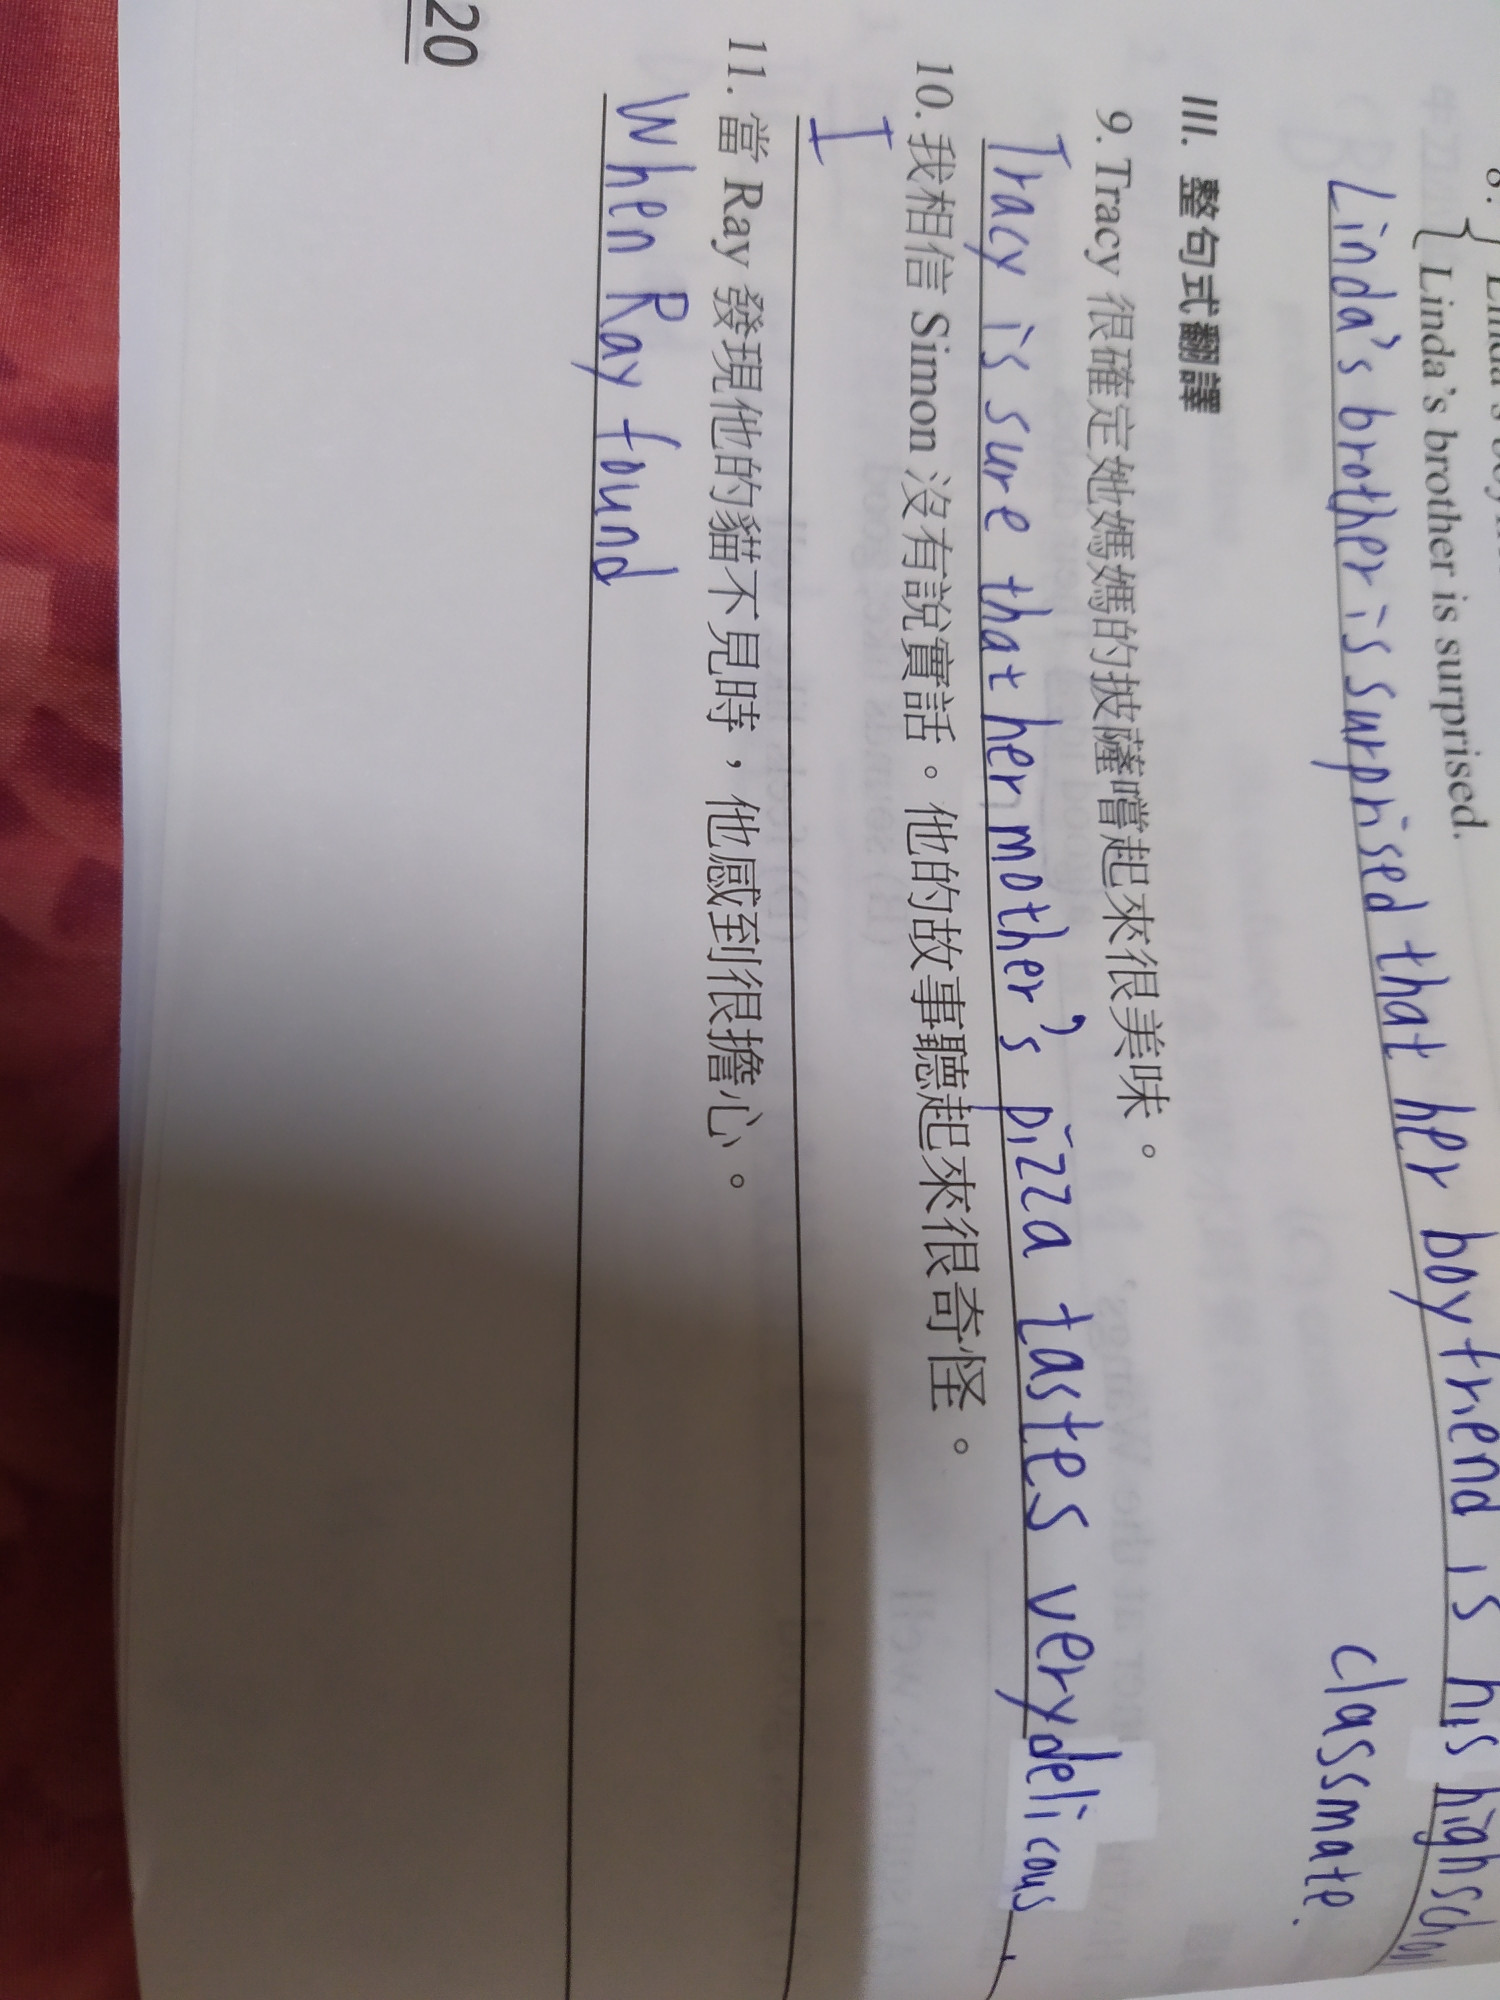 Linda's brother is surprised.
Linda's brother is surprised that her boyfriend is his high
classmate.
III. 整句式翻譯
9. Tracy 很確定她媽媽的披薩嚐起來很美味。
Tracy is sure that her mother's pizza tastes very delicous.
10. 我相信 Simon 沒有說實話。他的故事聽起來很奇怪。
I
11. 當 Ray 發現他的貓不見時，他感到很擔心。
When Ray found
20